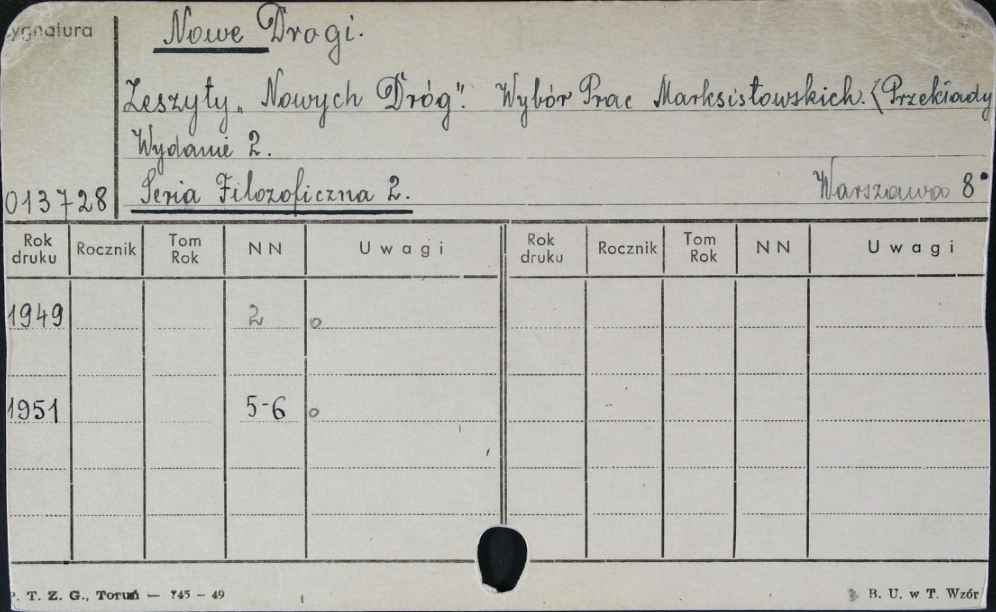 ygnatura
Nowe Drogi.
Zeszyty „Nowych Dróg". Wybór Prac Marksistowskich. (Przekłady
Wydanie 2.
013728 Seria Filozoficzna 2. Warszawa 8°
Rok druku Rocznik Tom Rok NN Uwagi Rok druku Rocznik Tom Rok NN Uwagi
1949 2 o
1951 5-6 o
P. T. Z. G., Toruń — 745 – 49 B. U. w T. Wzór